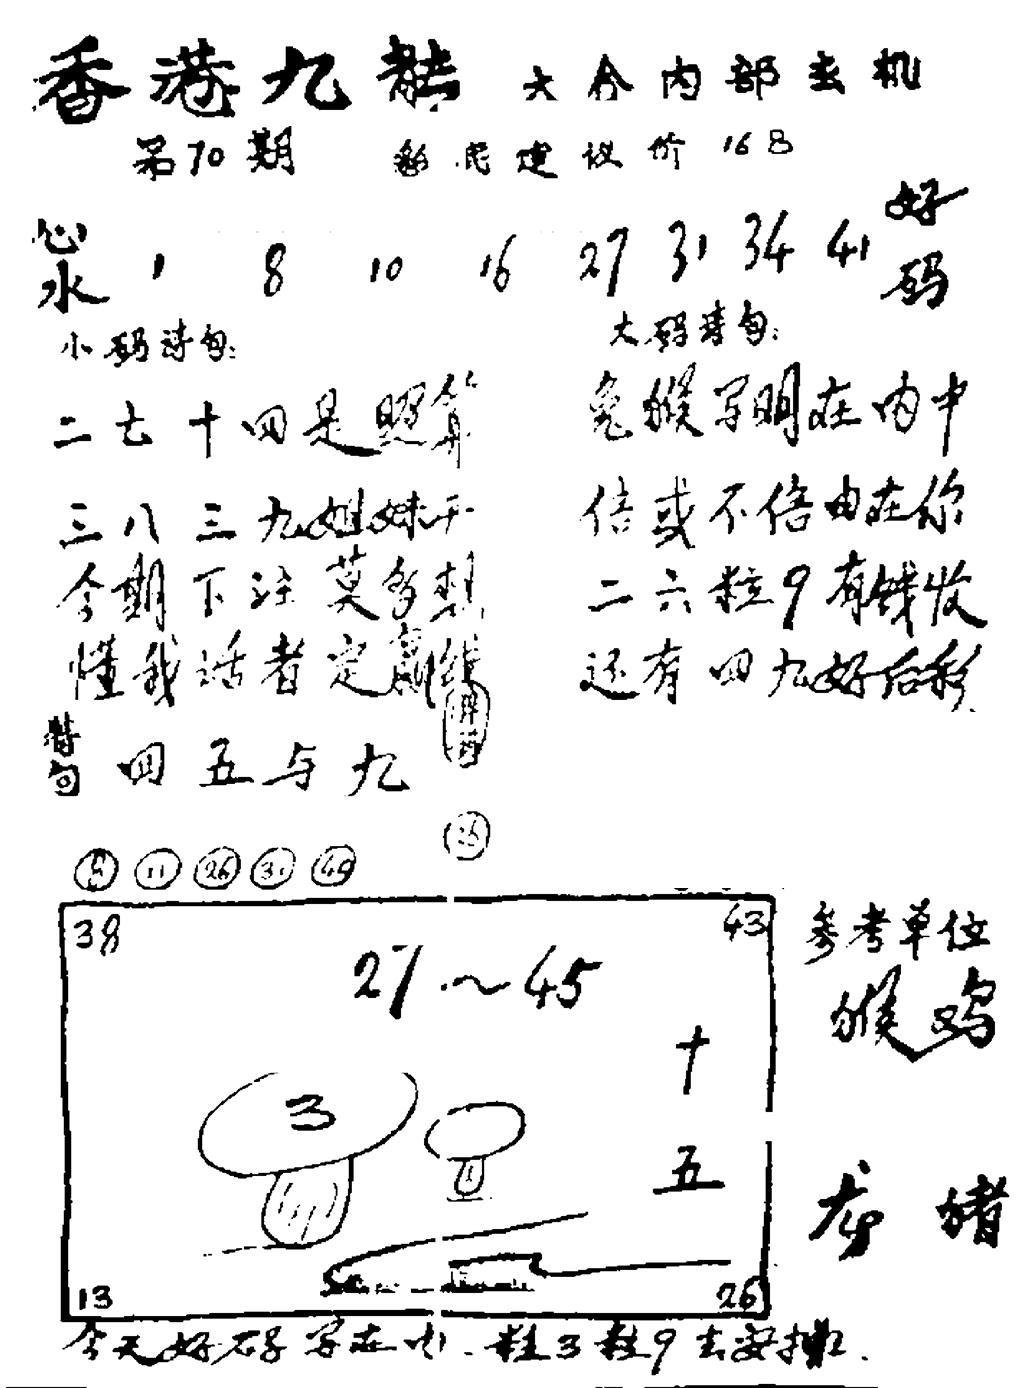 香港九龍 大会内部玄机
第70期 彩民建议价 168
心水 1 8 10 16 27 31 34 41 好码
小码诗句:
二七十四是照算
三八三九姐妹开
今期下注莫多想
懂我话者定赢钱
大码诗句:
兔猴写明在内中
信或不信由在你
二六粒9有钱收
还有四九好后彩
特句 四五与九
11 26 31
38 43
27~45
3
十
五
13 26
参考单位
猴鸡
龙猪
今天好码写在内.粒3粒9去安排.